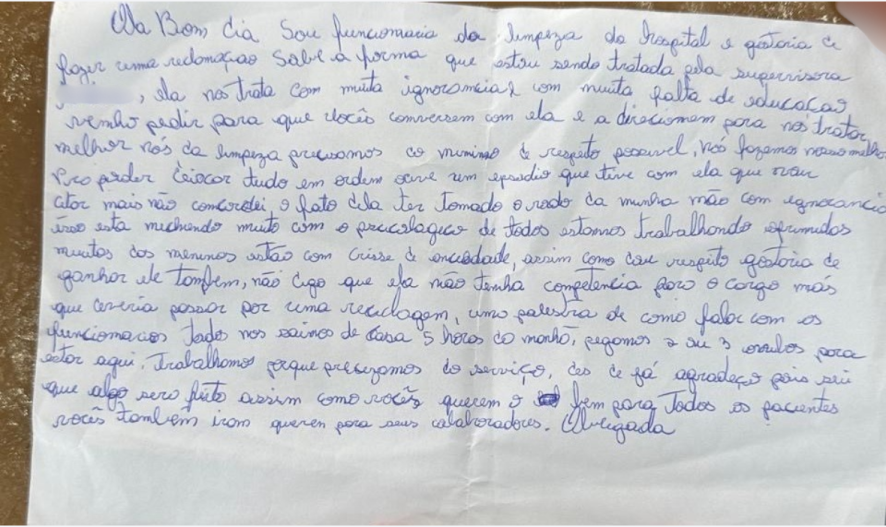 Ola Bom dia Sou funcionaria da limpeza do hospital e gostoria de
fazer uma reclamaçao Sobre a forma que estou sendo tratada pela supervisora
, ela nos trata com muita ignorancia e com muita falta de educação
venho pedir para que vocês conversem com ela e a direcionem para nos tratar
melhor nós da limpeza precisamos do minimo de respeito possivel, nós fazemos nosso melhor
Pro poder deixar tudo em ordem ouve um episodio que tive com ela que não
citar mais não concordei o fato dela ter tomado o rodo da minha mão com ignorancia
isso esta mechendo muito com o psicologico de todos estamos trabalhando oprimidos
muitas das meninas estão com Crisse de ansiedade, assim como dou respeito gostoria de
ganhar ele tambem, não digo que ela não tenha competencia para o cargo mas
que deveria passar por uma reciclagem, uma palestra de como falar com os
funcionarios Todos nos saimos de casa 5 horas da manhã, pegamos 2 ou 3 onibus para
estar aqui. Trabalhamos porque presizamos do serviço, des de já agradeço pois sei
que algo sera feito assim como vocês querem o bem para Todos os pacientes
vocês tambem iram querer para seus colaboradores. Obrigada